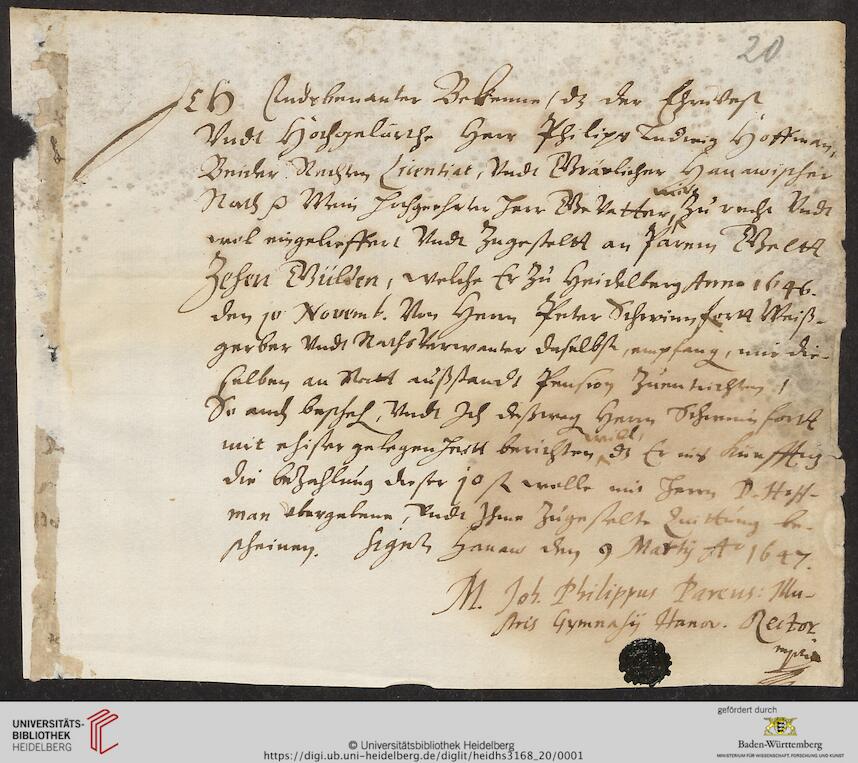 20
Ich Endsbenanter Bekenne, dz der Ehrvest
Undt Hochgelärthe Herr Philips Ludwig Hoffman,
Beider Rechten Licentiat, Undt Grävlicher Hanawischer
Rath p Mein Hochgeehrter Herr Gevatter, mir Zu recht Undt
wol eingelieffert Undt Zugestelt an Parem Geltt
Zehen Gülden, welche Er Zu Heidelberg Anno 1646.
den 10 Novemb. Von Herrn Peter Schweinfortt Weiß-
gerber Undt RathsVerwanter daselbst, empfang, mir die-
selben an Statt außstandt Pension Zuentrichten,
So auch bescheh, Undt Ich deßweg Herrn Schweinfortt
mit ehister gelegenheitt berichten will, dz Er mir künfftig
die bezahlung dieser 10 fl wolle mit Herrn D. Hoff-
man übergebene, Undt Ihme Zugestelte Quittung be-
scheinen. Sign. Hanaw den 9 Martij Ao 1647.
M. Joh. Philippus Pareus: Illu-
stris Gymnasij Hanov. Rector
mpria
UNIVERSITÄTS-
BIBLIOTHEK
HEIDELBERG
© Universitätsbibliothek Heidelberg
https://digi.ub.uni-heidelberg.de/diglit/heidhs3168_20/0001
gefördert durch
Baden-Württemberg
MINISTERIUM FÜR WISSENSCHAFT, FORSCHUNG UND KUNST